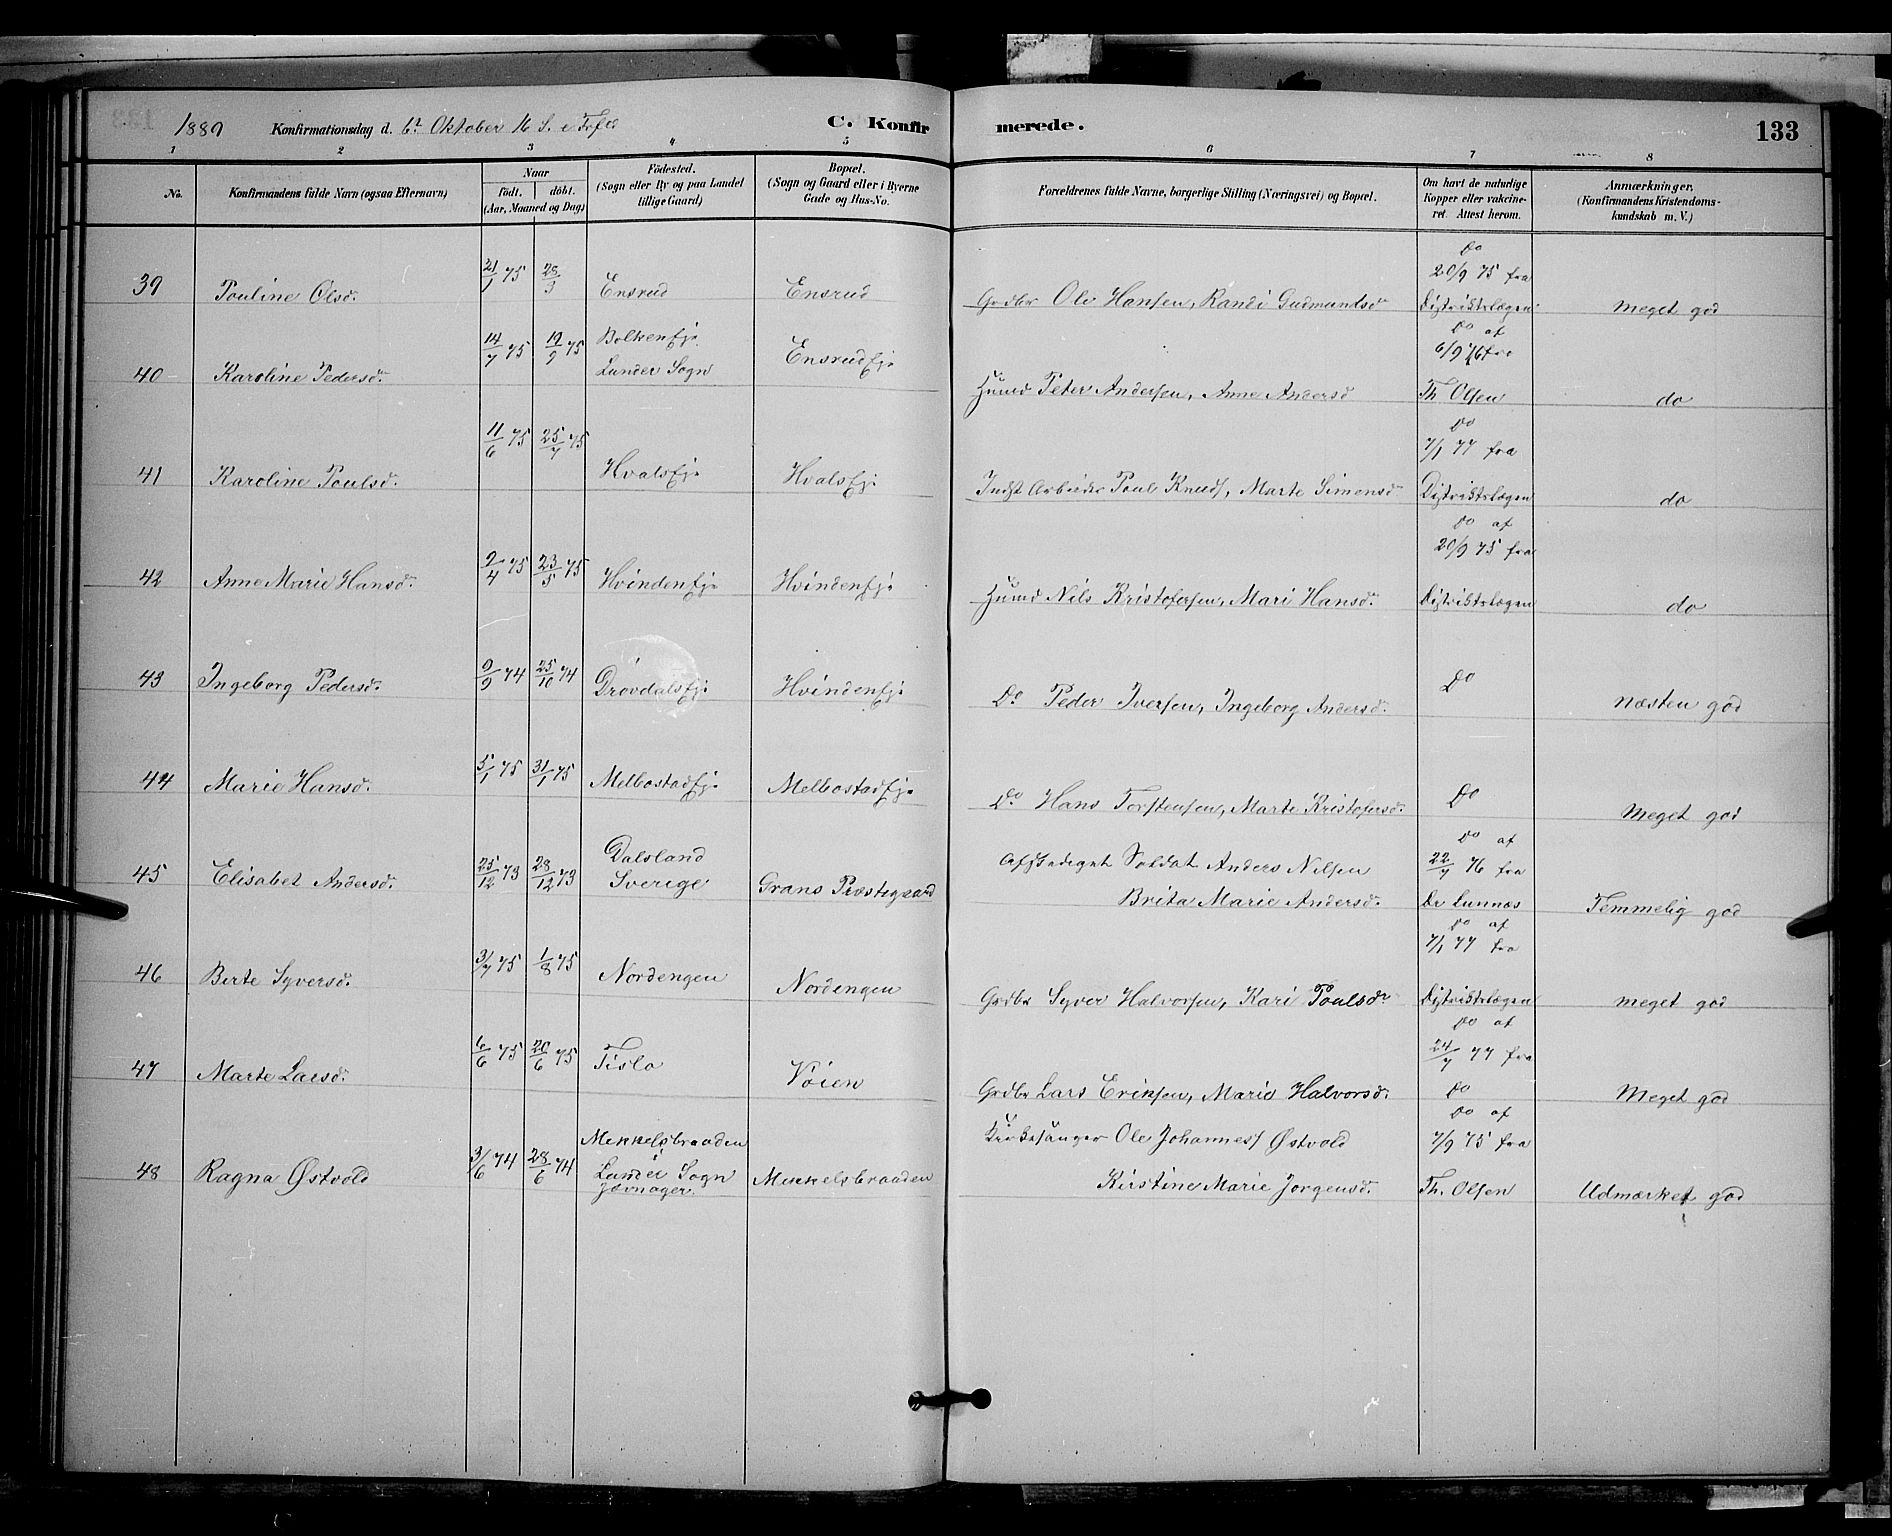 1889 Konfirmationsdag d. 6te Oktober 16 S. e Tref. C. Konfirmerede. 133
1 2 3 4 5 6 7 8
No. Konfirmandens fulde Navn (ogsaa Efternavn) Naar födt. döbt. (Aar, Maaned og Dag) Födested. (Sogn eller By og paa Landet tillige Gaard) Bopæl. (Sogn og Gaard eller i Byerne Gade og Hus-No. Forældrenes fulde Navne, borgerlige Stilling (Næringsvei) og Bopæl. Om havt de naturlige Kopper eller vakcineret. Attest herom. Anmærkninger. (Konfirmandens Kristendomskundskab m. V.)
39 Pouline Olsd. 21/1 75 28/3 Ensrud Ensrud Grdbr Ole Hansen, Randi Gudmundsd Do 20/9 75 fra Distriktslægen meget god
40 Karoline Pedersd. 14/7 75 19/9 75 Bolkenej. Lunder Sogn Ensrudej. Husmd Peter Andersen, Anne Andersd Do af 6/9 76 fra Th. Olsen do
41 Karoline Poulsd. 11/6 75 25/7 75 Hvalsej. Hvalsej. Indst Arbeider Poul Knuds, Marte Simensd Do 7/1 77 fra Distriktslægen do
42 Anne Marie Hansd. 9/4 75 23/5 75 Hvindenej. Hvindenej. Husmd Nils Kristofersen, Mari Hansd. Do af 20/9 75 fra Distriktslægen do
43 Ingeborg Pedersd. 9/9 74 25/10 74 Drövdalsej. Hvindenej. Do Peder Iversen, Ingeborg Andersd. Do næsten god
44 Marie Hansd. 5/1 75 31/1 75 Melbostadej. Melbostadej. Do Hans Torstensen, Marte Kristofersd. Do Meget god
45 Elisabet Andersd. 25/12 73 28/12 73 Dalsland Sverige Grans Præstegaard Afskediget Soldat Anders Nilsen Brita Marie Andersd. Do af 22/7 76 fra Dr Lunnæs Temmelig god
46 Berte Syversd. 3/7 75 1/8 75 Nordengen Nordengen Grdbr Syver Halvorsen, Kari Poulsdr Do af 7/1 77 fra Distriktslægen meget god
47 Marte Larsd. 6/6 75 20/6 75 Tislo Vöien Grdbr Lars Eriksen, Marie Halvorsd. Do af 24/7 77 fra Do Meget god
48 Ragna Østvold 3/6 74 28/6 74 Mekkelsbraaden Lunder Sogn Jævnager Mekkelsbraaden Kirkesanger Ole Johannes Østvold Kirstine Marie Jorgensd. Do af 7/9 75 fra Th. Olsen Udmærket god